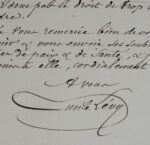 donc pas le droit de trop
vous remercie bien de vo
et vous envoie ses souh
de paix & de santé,
à elle, cordialement
à vous
Emile Levy